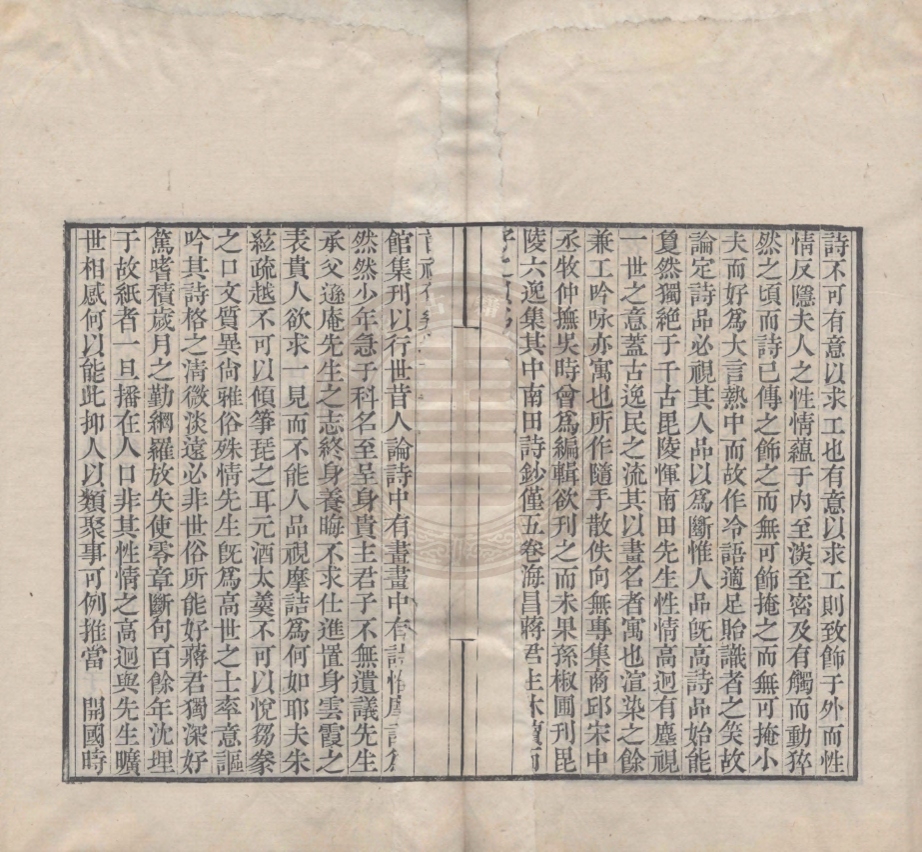 詩不可有意以求工也有意以求工則致飾于外而性
情反隱夫人之性情蘊于內至深至密及有觸而動猝
然之頃而詩已傳之飾之而無可飾掩之而無可掩小
夫而好爲大言熱中而故作冷語適足貽識者之笑故
論定詩品必視其人品以爲斷惟人品旣高詩品始能
夐然獨絕于千古毘陵惲南田先生性情高迥有塵視
一世之意蓋古逸民之流其以畫名者寓也渲染之餘
兼工吟咏亦寓也所作隨手散佚向無專集商邱宋中
丞牧仲撫吳時曾爲編輯欲刊之而未果孫椒圃刊毘
陵六逸集其中南田詩鈔僅五卷海昌蔣君生沐
館集刊以行世昔人論詩中有畫畫中有詩
然然少年急于科名至呈身貴主君子不無遺議先生
承父遜庵先生之志終身養晦不求仕進置身雲霞之
表貴人欲求一見而不能人品視摩詰爲何如耶夫朱
絃疏越不可以傾箏琵之耳元酒太羹不可以悅芻豢
之口文質異尙雅俗殊情先生旣爲高世之士率意謳
吟其詩格之清微淡遠必非世俗所能好蔣君獨深好
篤嗜積歲月之勤網羅放失使零章斷句百餘年沈埋
于故紙者一旦播在人口非其性情之高迥與先生曠
世相感何以能此抑人以類聚事可例推當　開國時